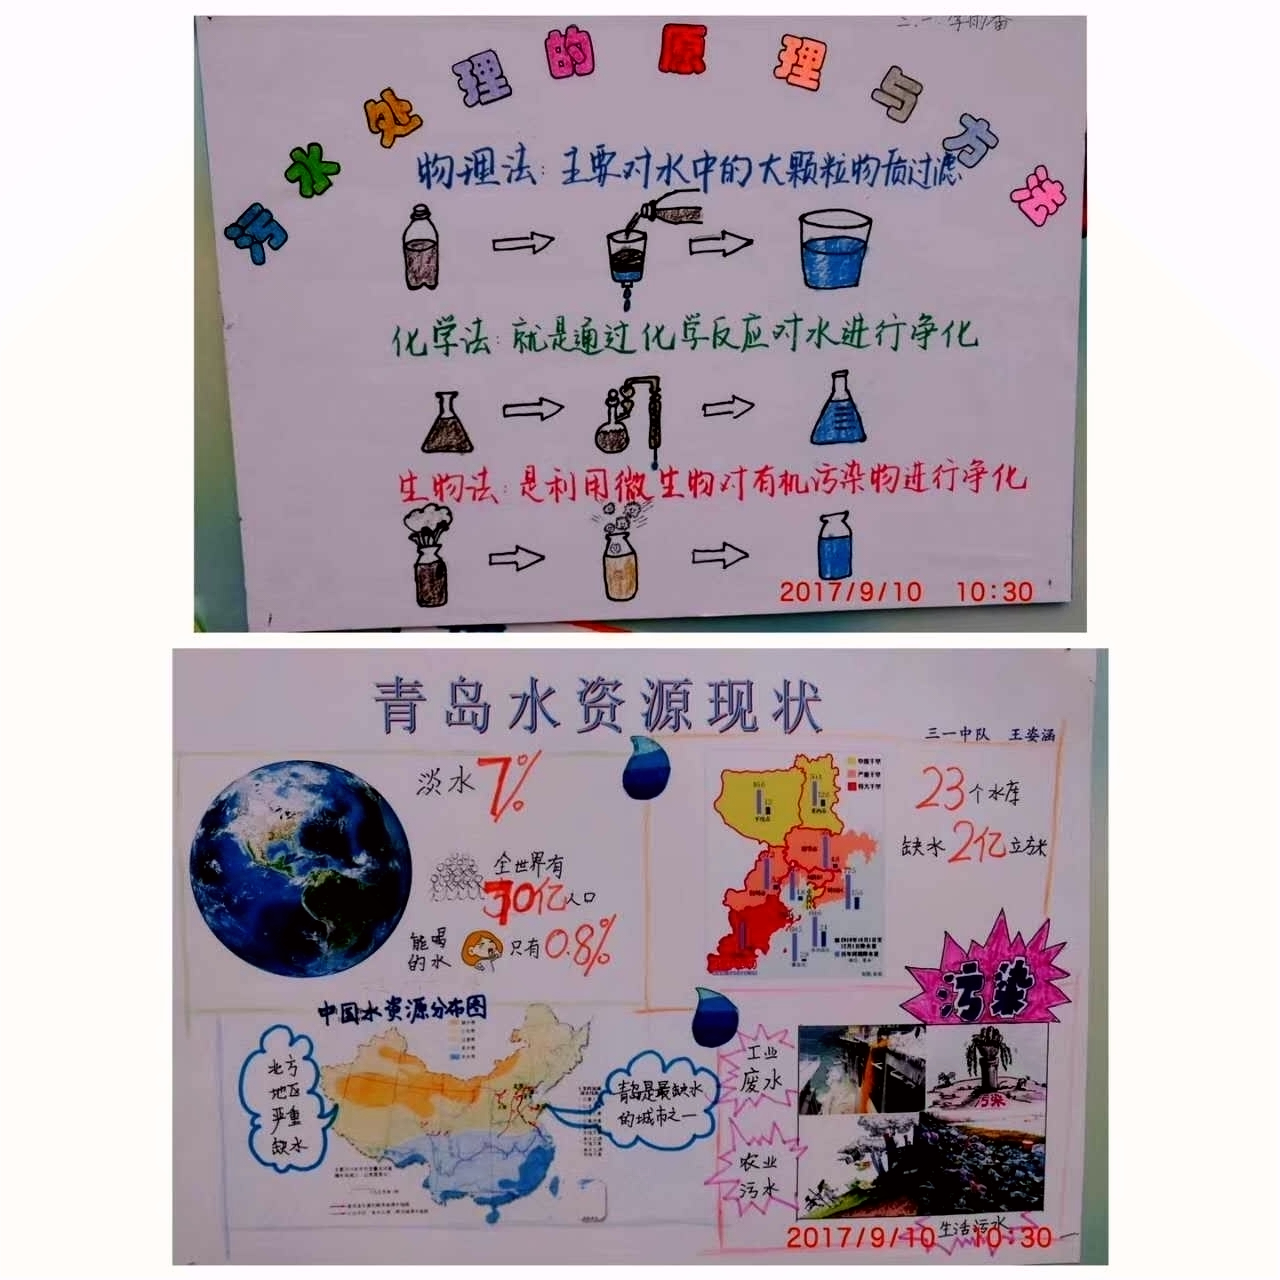 污水处理的原理与方法
物理法:主要对水中的大颗粒物质过滤
化学法:就是通过化学反应对水进行净化
生物法:是利用微生物对有机污染物进行净化
2017/9/10 10:30
青岛水资源现状
三一中队 王姿涵
淡水7%
全世界有
70亿人口
能喝
的水
只有0.8%
中度干旱
严重干旱
特大干旱
23个水库
缺水2亿立方米
中国水资源分布图
北方
地区
严重
缺水
青岛是最缺水
的城市之一
污染
工业
废水
污染
农业
污水
生活污水
2017/9/10 10:30